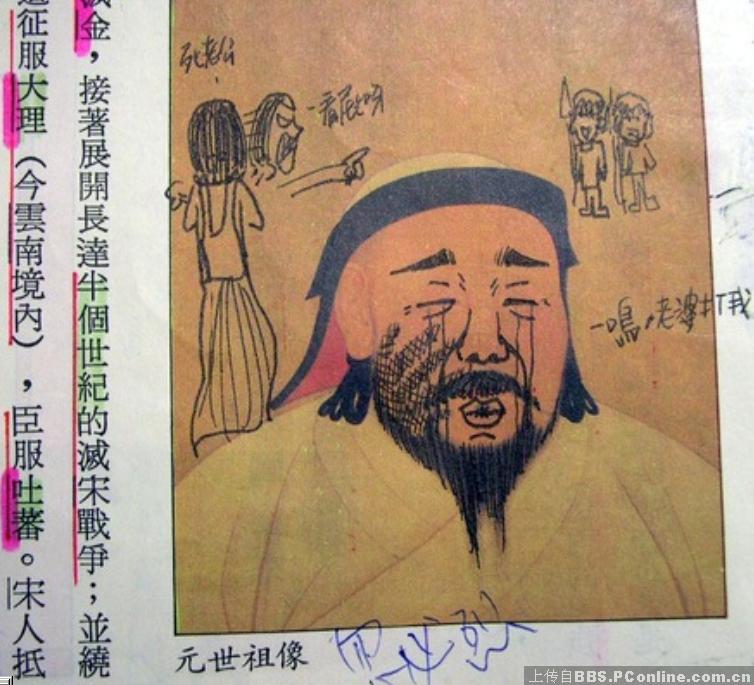 滅金，接著展開長達半個世紀的滅宋戰爭；並繞
道征服大理（今雲南境內），臣服吐蕃。宋人抵
死老公
看屁呀
嗚。老婆打我
元世祖像
必烈
上传自BBS.PConline.com.cn